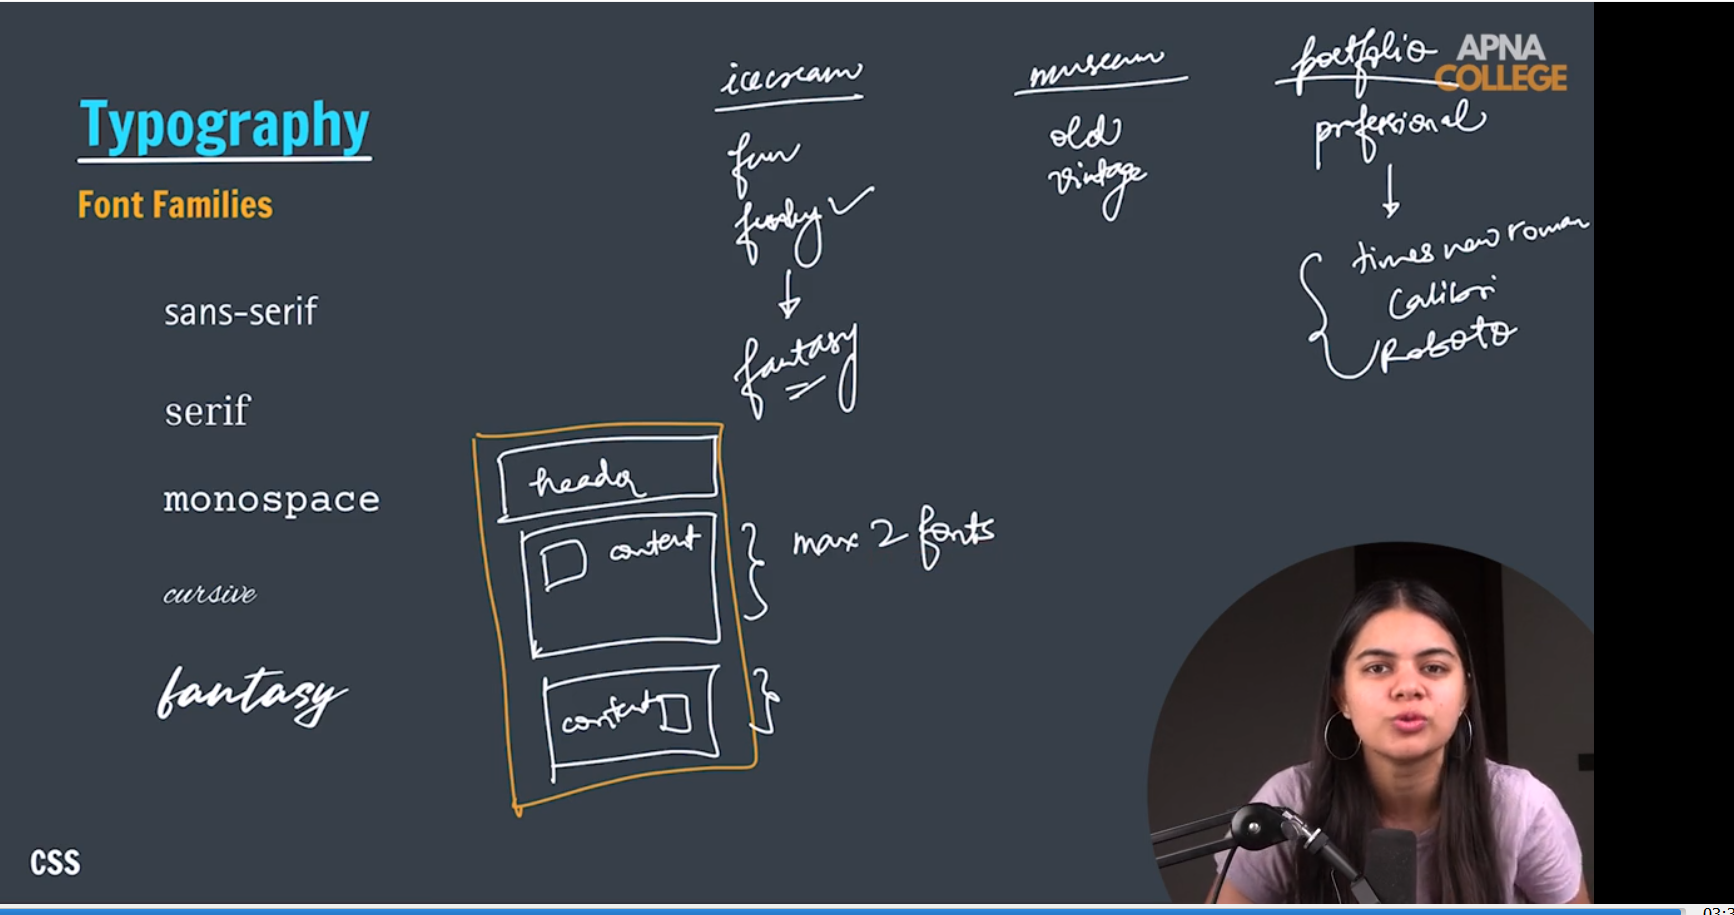 APNA
COLLEGE
Typography
Font Families
sans-serif
serif
monospace
cursive
fantasy
icecream
fun
funky
fantasy
museum
old
vintage
portfolio
professional
times new roman
Calibri
Roboto
header
content
max 2 fonts
content
CSS